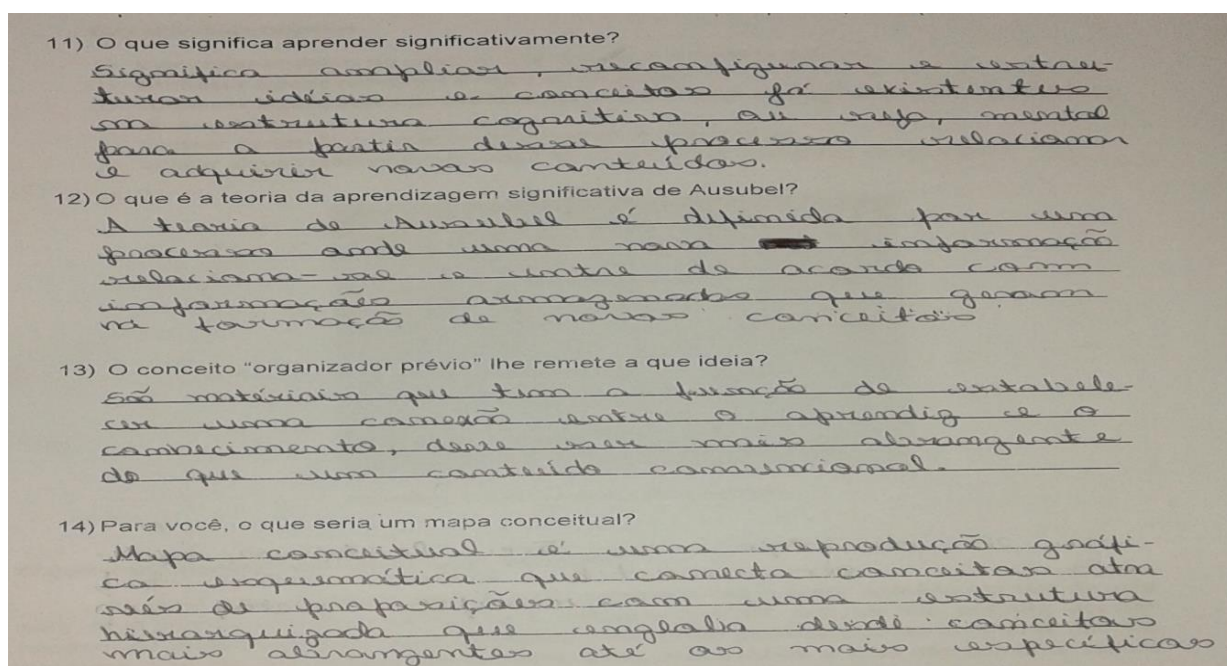 11) O que significa aprender significativamente?
Significa ampliar, reconfigurar e estru-
turar idéias e conceitos já existentes
na estrutura cognitiva, ou seja, mental
para a partir desse processo relacionar
e adquirir novos conteúdos.
12) O que é a teoria da aprendizagem significativa de Ausubel?
A teoria de Ausubel é definida por um
processo onde uma nova informação
relaciona-se e entra de acordo com
informações armazenadas que geram
na formação de novos conceitos
13) O conceito "organizador prévio" lhe remete a que ideia?
São matériais que tem a função de estabele-
cer uma conexão entre o aprendiz e o
conhecimento, deve ser mais abrangente
do que um conteúdo convencional.
14) Para você, o que seria um mapa conceitual?
Mapa conceitual é uma reprodução gráfi-
ca esquemática que conecta conceitos atra
vés de proposições com uma estrutura
hierarquizada que engloba desde conceitos
mais abrangentes até os mais específicos